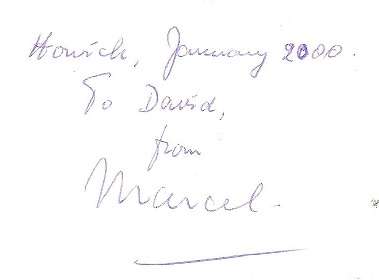 Howick, January 2000.
To David,
from
Marcel.